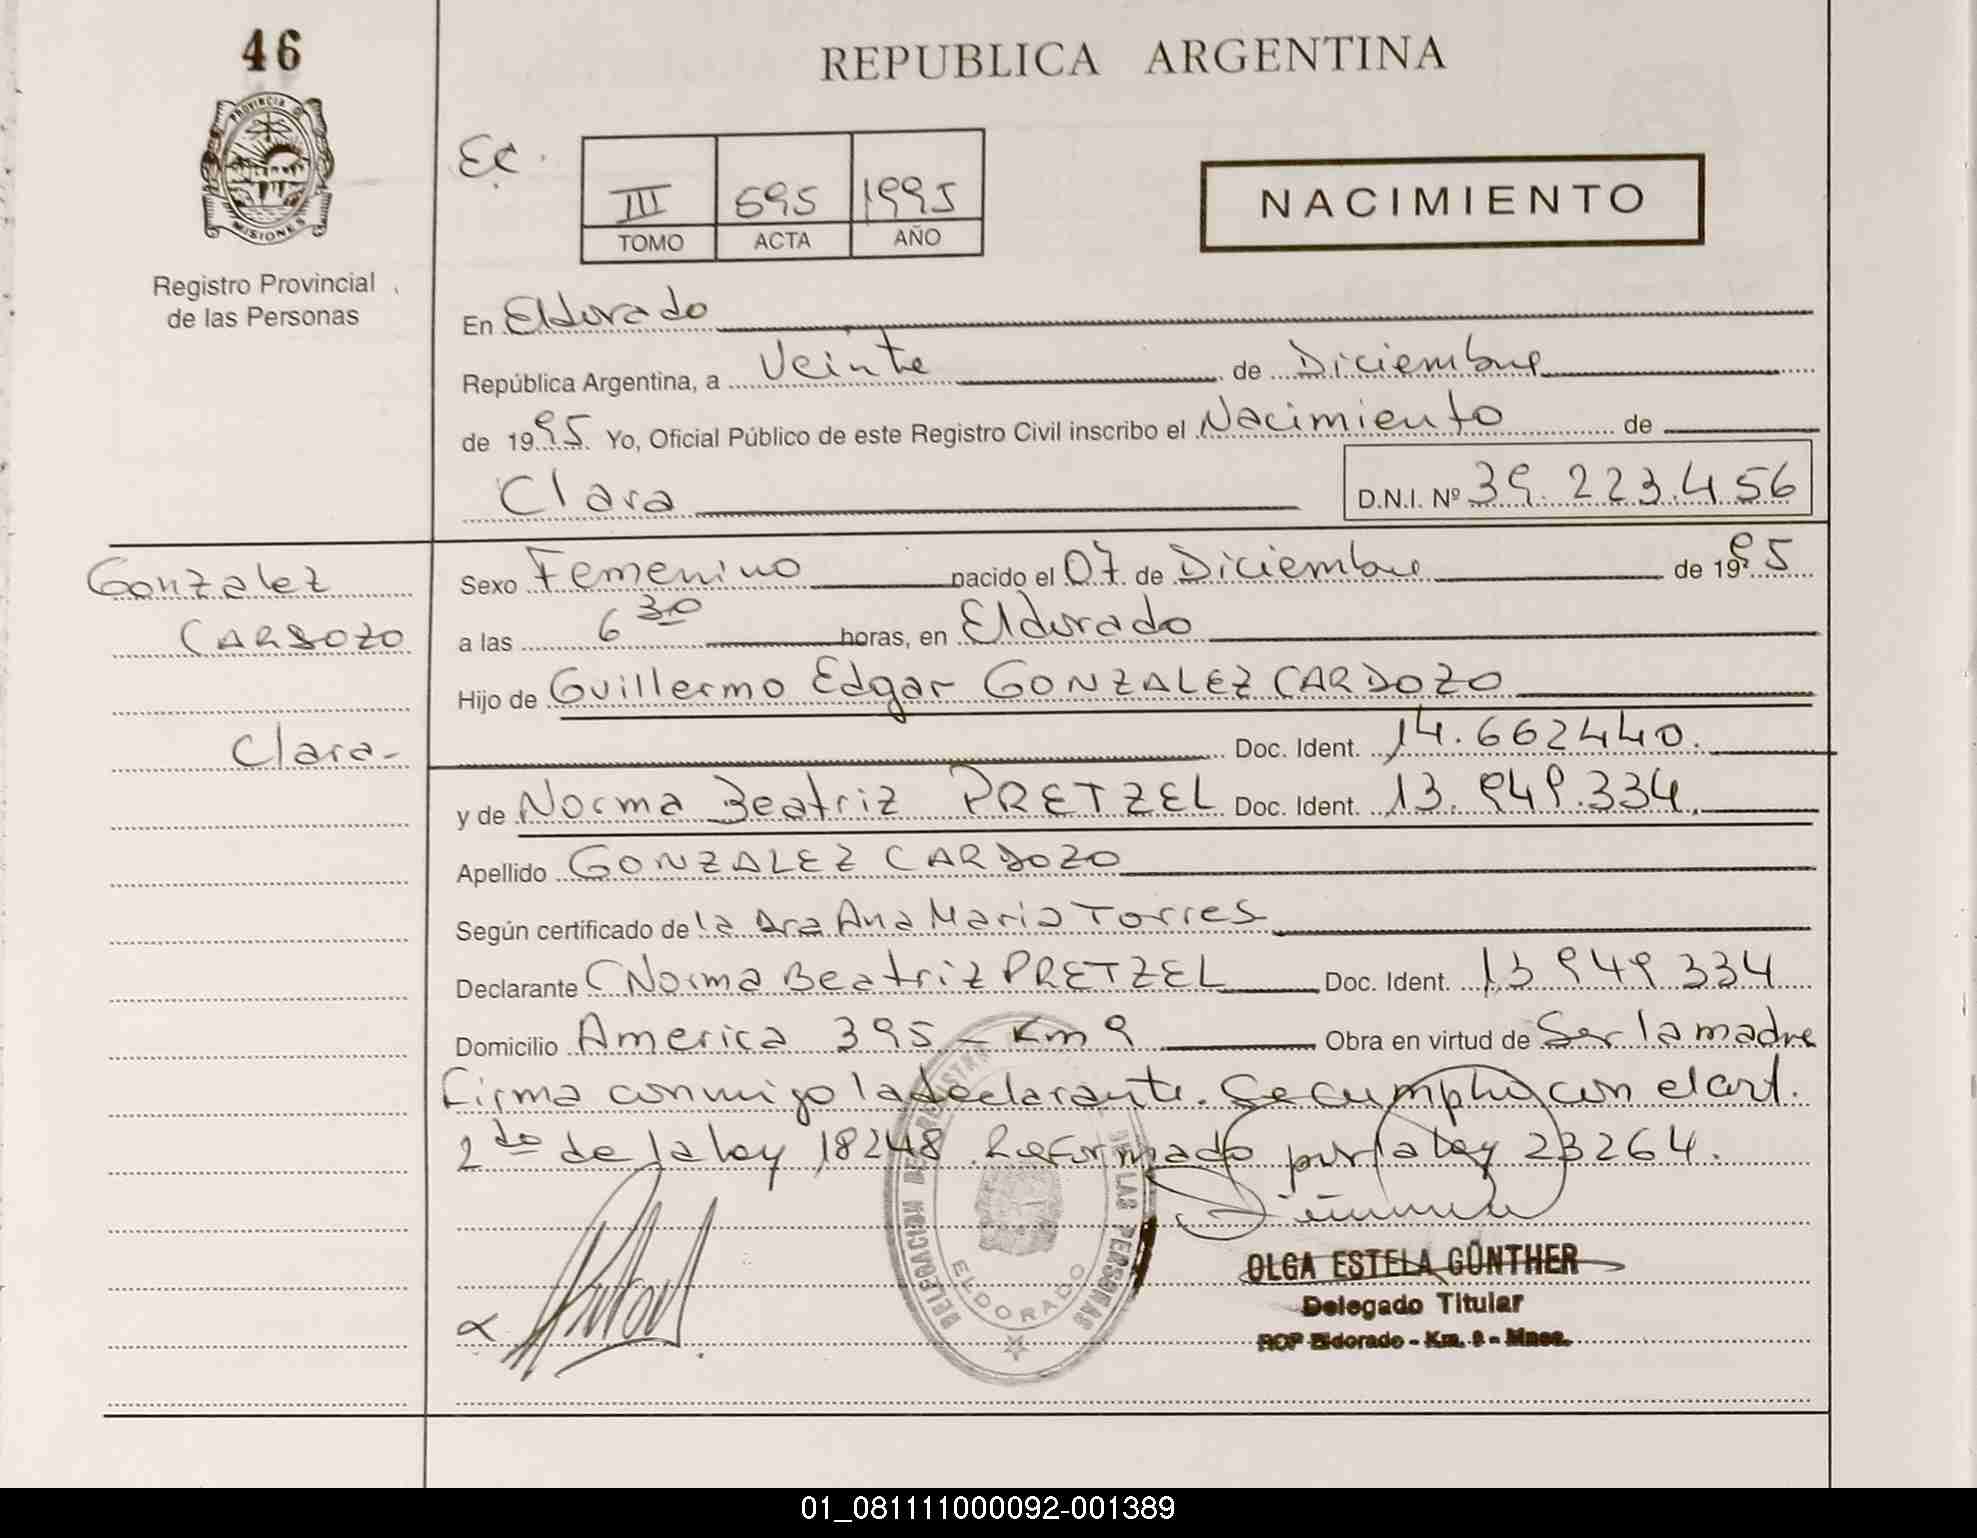 46
REPUBLICA ARGENTINA
PROVINCIA DE MISIONES
Registro Provincial
de las Personas
EC.
III 595 1995
TOMO ACTA AÑO
NACIMIENTO
En Eldorado
República Argentina, a Veinte de Diciembre
de 1995 Yo, Oficial Público de este Registro Civil inscribo el Nacimiento de
Clara D.N.I. Nº 39.223.456
Gonzalez
CARDOZO
Clara-
Sexo Femenino nacido el 07 de Diciembre de 1995
a las 6 30 horas, en Eldorado
Hijo de Guillermo Edgar GONZALEZ CARDOZO
Doc. Ident. 14.662440.
y de Norma Beatriz PRETZEL Doc. Ident. 13.949.334.
Apellido GONZALEZ CARDOZO
Según certificado de la Dra Ana Maria Torres
Declarante Norma Beatriz PRETZEL Doc. Ident. 13 949 334
Domicilio America 395 - Km 9 Obra en virtud de Ser la madre
Firma conmigo la declarante. Se cumplió con el art.
2do de la ley 18248 Reformado por la ley 23264.
DELEGACION DEL REGISTRO DE LAS PERSONAS
ELDORADO
OLGA ESTELA GÜNTHER
Delegado Titular
RCP Eldorado - Km. 9 - Mnes.
01_081111000092-001389